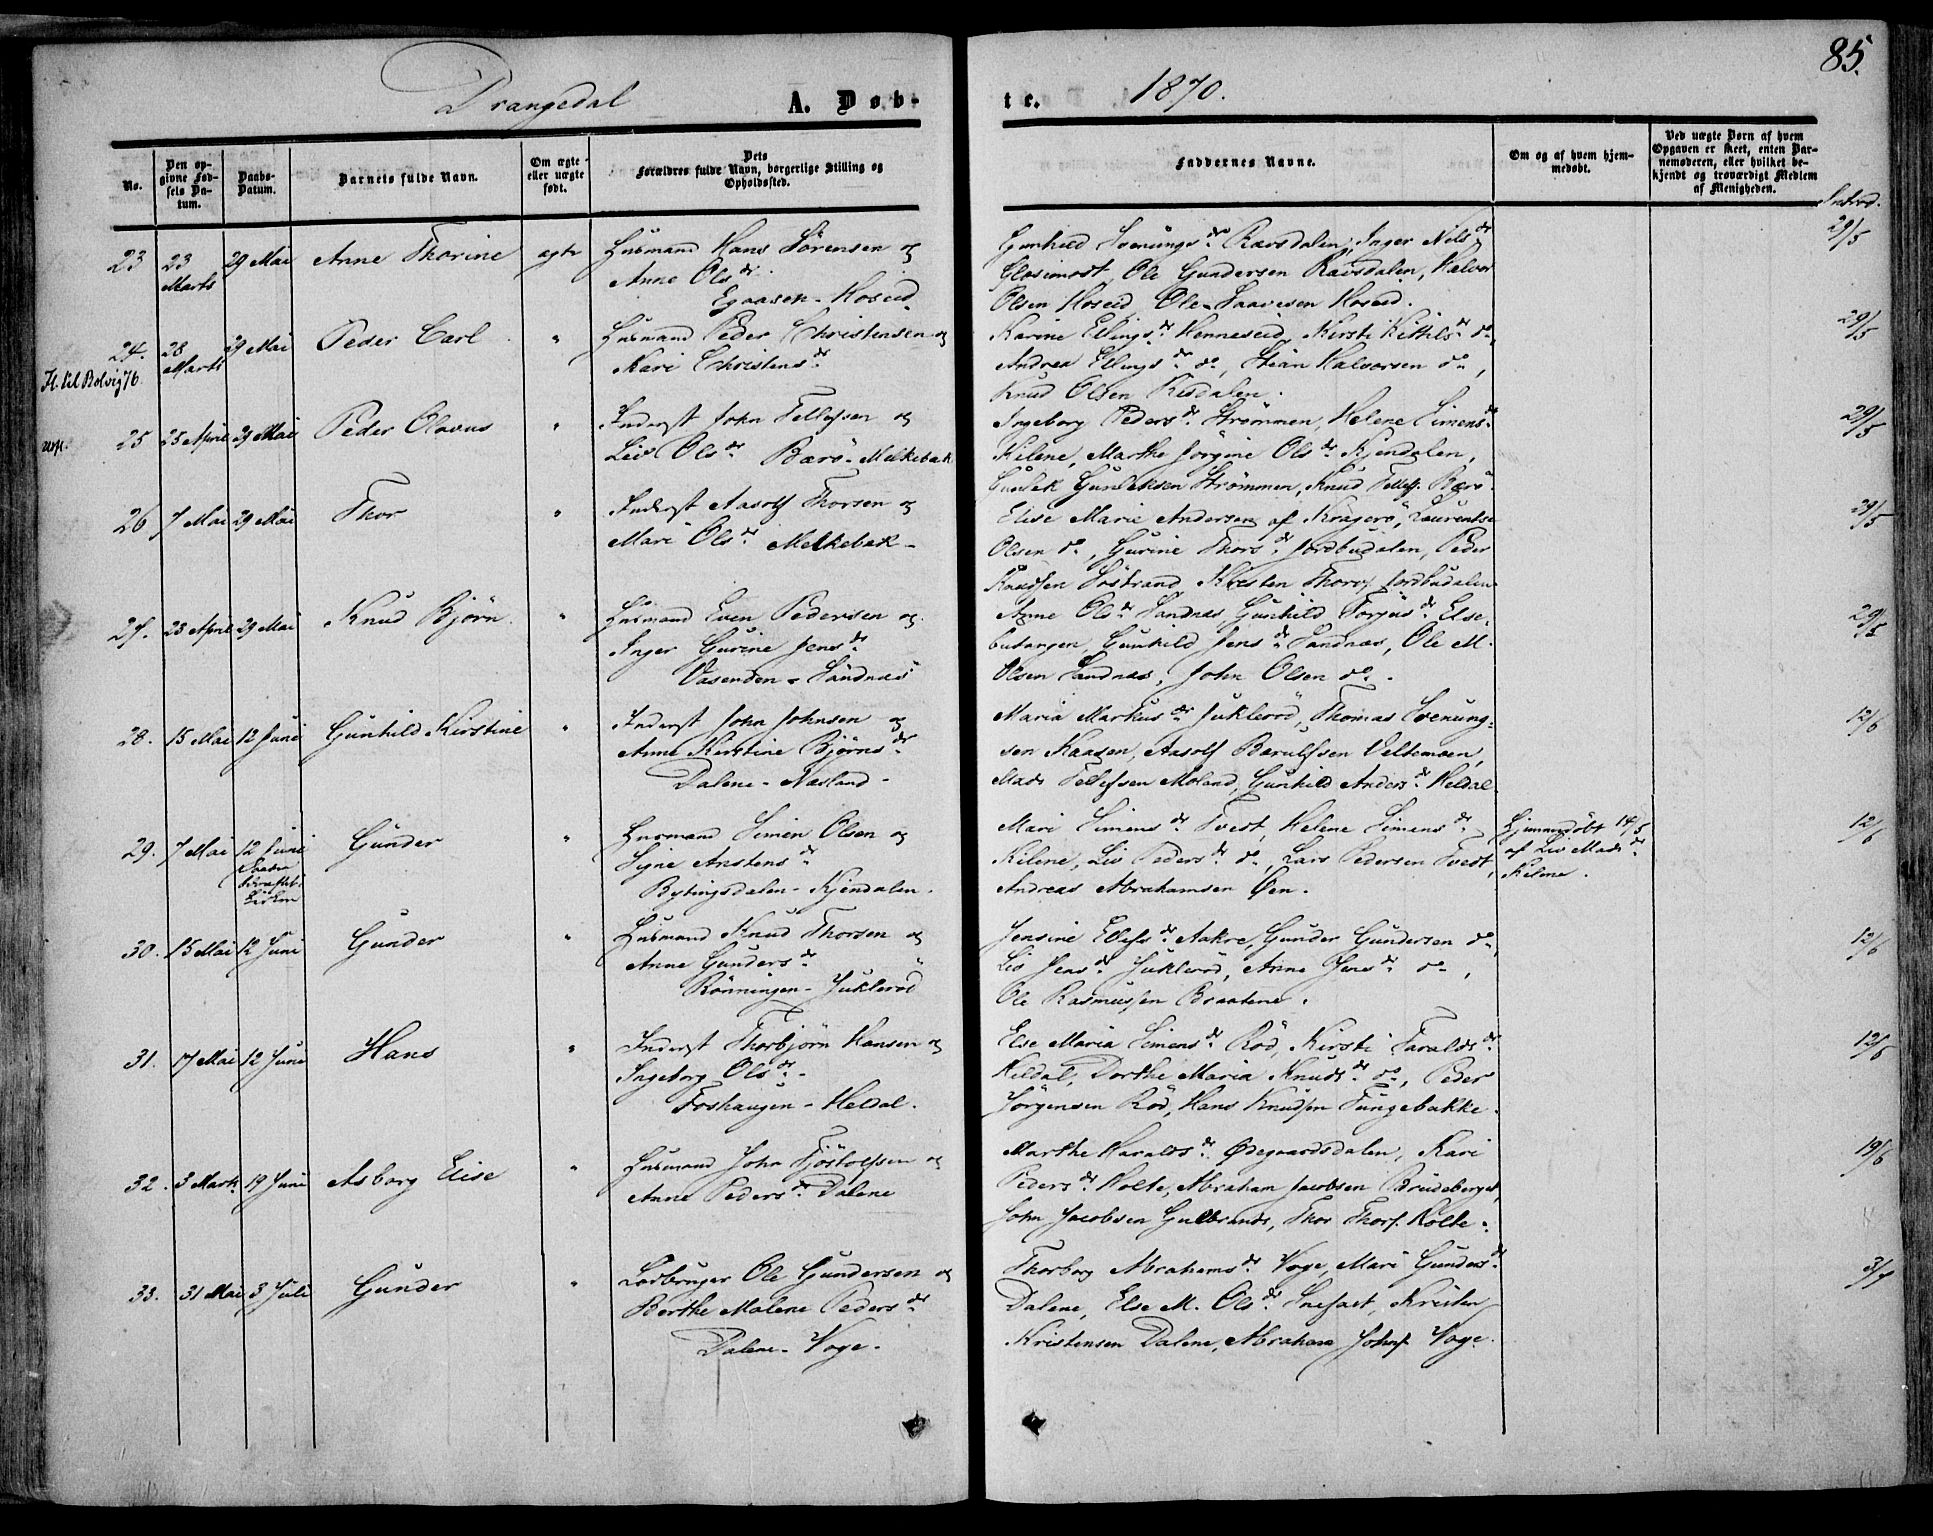 85.
Drangedal
A. Døb-
te.
1870.
No.
Den op-
givne Fød-
sels Da-
tum.
Daabs-
Datum.
Barnets fulde Navn.
Om ægte
eller uægte
født.
Dets
Forældres fulde Navn, borgerlige Stilling og
Opholdssted.
Faddernes Navne.
Om og af hvem hjem-
medøbt.
Ved uægte Børn af hvem
Opgaven er skeet, enten Bar-
nemoderen, eller hvilket be-
kjendt og troværdigt Medlem
af Menigheden.
Introd.
23
23 Marts
29 Mai
Anne Thorine
ægte
Husmand Hans Sörensen og
Anne Olsdr.
Egaasen - Hoseid
Gunhild Svenungsdr. Ravsdalen, Inger Nilsdr.
Ole Gundersen Ravsdalen, Halvor
Olsen Hoseid, Ole Saavesen Hoseid.
29/5
24.
28 Marts
29 Mai
Peder Carl
"
Husmand Peder Christensen og
Kari Christensdr.
Karine Ellingsdr. Henneseid, Kirsti Kittilsdr. do,
Andrea Ellingsdr. do, Stian Halvorsen do,
Knud Olsen Risdalen.
29/5
Fl. til Bolvig 76.
25
25 April
29 Mai
Peder Olavus
"
Inderst John Tellefsen og
Liv Olsdr. Barö - Melkebæk
Ingeborg Pedersdr. Strømmen, Helene Simensdr.
Kilene, Marthe Jörgine Olsdr. Kjendalen,
Gunlek Gunleksen Strømmen, Knud Tellefs. Barö.
29/5
26
7 Mai
29 Mai
Thor
"
Inderst Aasolf Thorsen og
Mari Olsdr. Melkebæk -
Elise Marie Andersen af Kragerö, Laurentse
Olsen do, Gurine Thorsdr. Jordbudalen, Peder
Knudsen Söstrand Kresten Thors. Jordbudalen
29/5
27.
23 April
29 Mai
Knud Bjørn.
"
Husmand Even Pedersen og
Inger Gurine Jensdr.
Vasenden - Sandnæs
Anne Olsdr. Sandnæs Gunhild Torjusdr. Else-
butangen, Gunhild Jensdr. Sandnæs, Ole M.
Olsen Sandnæs, John Olsen do.
29/5
28.
15 Mai
12 Juni
Gunhild Kirstine
"
Inderst John Johnsen og
Anne Kirstine Bjørnsdr.
Dalene - Næsland -
Maria Markusdr. Jukleröd, Thomas Svenung-
sen Kaasen, Aasolf Barulfsen Veltemoen,
Mads Tellefsen Moland, Gunhild Andersdr. Heldal.
12/6
29.
7 Mai
12 Juni
Daaben
bekræftet i
Kirken
Gunder
"
Husmand Simen Olsen og
Signe Anstensdr.
Bytingsdalen - Kjendalen.
Mari Simensdr. Tvedt, Helene Simensdr.
Kilene, Liv Pedersdr. do, Lars Pedersen Tvedt,
Andreas Abrahamsen Øen.
Hjemmedöbt 14/5
af Liv Madsdr.
Kilene.
12/6
30.
15 Mai
12 Juni
Gunder
"
Husmand Knud Thorsen og
Anne Gundersdr.
Rönningen - Juklerød
Jensine Elefsdr. Aakre, Gunder Gundersen do,
Liv Jensdr. Juklerød, Anne Jensdr. do,
Ole Rasmussen Braatene.
12/6
31.
17 Mai
12 Juni
Hans
"
Inderst Thorbjörn Hansen og
Ingeborg Olsdr. -
Foshaugen - Heldal.
Else Maria Simensdr. Röd, Kirsti Taraldsdr.
Heldal, Dorthe Maria Knudsdr. do, Peder
Jörgensen Röd, Hans Knudsen Tungebakke.
12/6
32.
3 Marts
19 Juni
Asborg Elise
"
Husmand John Tjöstolfsen og
Anne Pedersdr. Dalene
Marthe Haraldsdr. Ødegaardsdalen, Kari
Pedersdr. Holte, Abraham Jacobsen Brudeberget,
John Jacobsen Gulbrands, Thor Thors. Holte.
19/6
33.
31 Mai
3 Juli
Gunder
"
Lodbruger Ole Gundersen og
Berthe Malene Pedersdr.
Dalene - Voge.
Thorborg Abrahamsdr. Voge, Mari Gundersdr.
Dalene, Else M. Olsdr. Kristen
Kristensen Dalene, Abraham Johns. Voge.
3/7